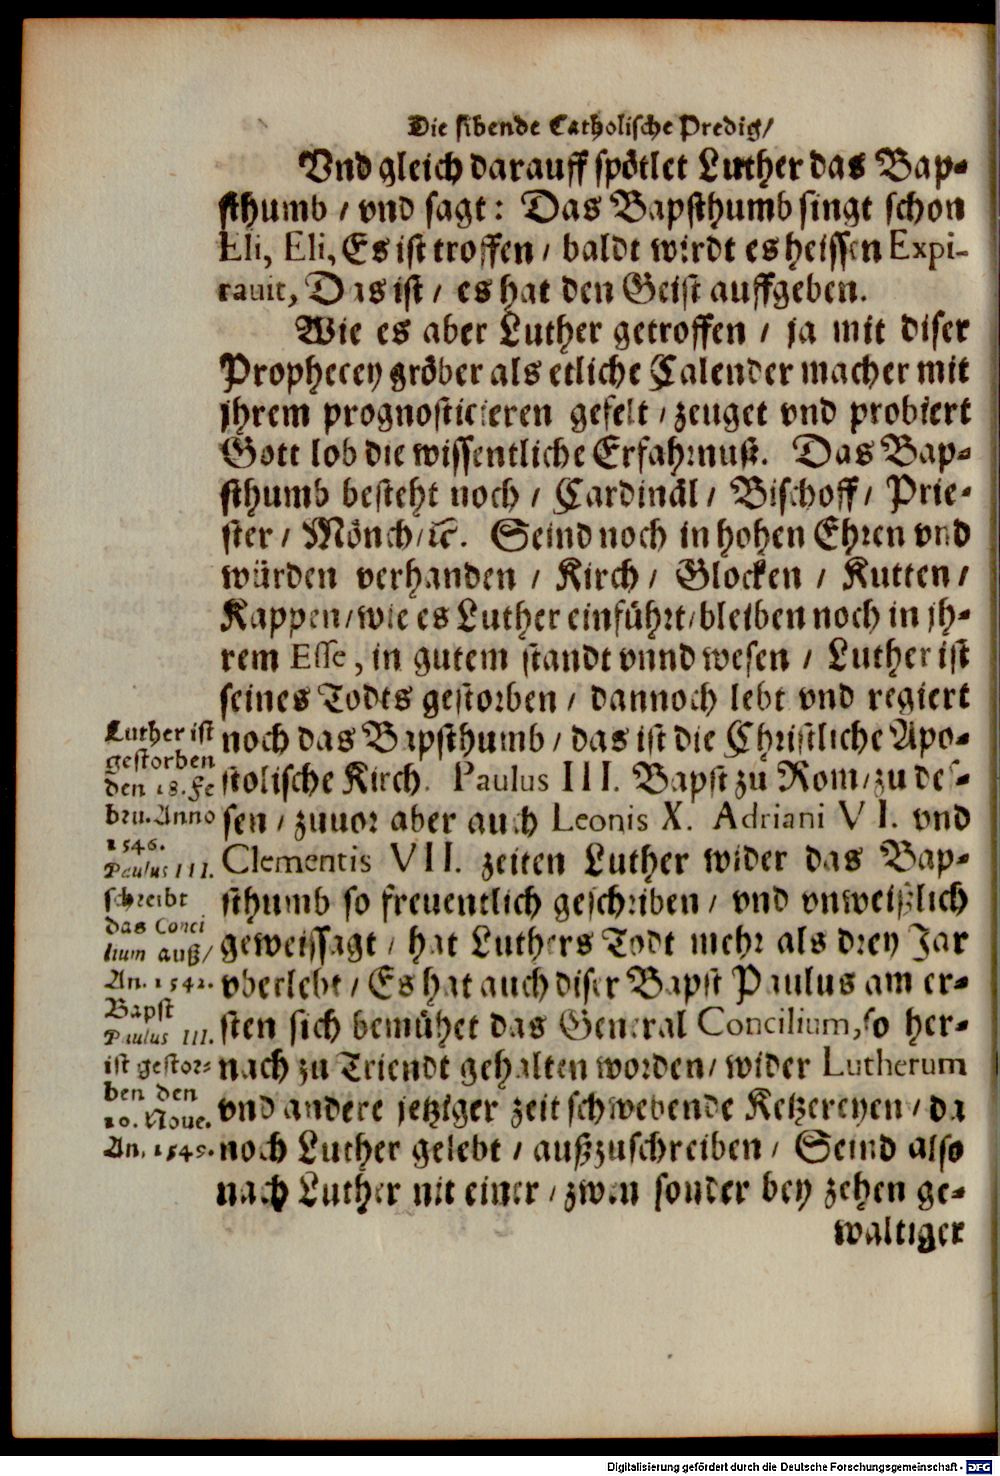 Die sibende Catholische Predig/
Vnd gleich darauff spötlet Luther das Bap-
sthumb / vnd sagt: Das Bapsthumb singt schon
Eli, Eli, Es ist troffen / baldt wirdt es heissen Expi-
rauit, Das ist / es hat den Geist auffgeben.
Wie es aber Luther getroffen / ja mit diser
Prophecey gröber als etliche Calender macher mit
jhrem prognosticieren gefelt / zeuget vnd probiert
Gott lob die wissentliche Erfahrnuß. Das Bap-
sthumb besteht noch / Cardinäl / Bischoff / Prie-
ster / Mönch / ꝛc. Seind noch in hohen Ehren vnd
würden verhanden / Kirch / Glocken / Kutten /
Kappen / wie es Luther einführt / bleiben noch in jh-
rem Esse, in gutem standt vnnd wesen / Luther ist
seines Todts gestorben / dannoch lebt vnd regiert
noch das Bapsthumb / das ist die Christliche Apo-
stolische Kirch. Paulus III. Bapst zu Rom / zu des-
sen / zuuor aber auch Leonis X. Adriani VI. vnd
Clementis VII. zeiten Luther wider das Bap-
sthumb so freuentlich geschriben / vnd vnweißlich
geweissagt / hat Luthers Todt mehr als drey Jar
vberlebt / Es hat auch diser Bapst Paulus am er-
sten sich bemühet das General Concilium, so her-
nach zu Triendt gehalten worden / wider Lutherum
vnd andere jetziger zeit schwebende Ketzereyen / da
noch Luther gelebt / außzuschreiben / Seind also
nach Luther nit einer / zwen sonder bey zehen ge-
waltiger
Luther ist
gestorben
den 18. Fe
bru. Anno
1546.
Paulus III.
schreibt
das Conci
lium auß /
An. 1542.
Bapst
Paulus III.
ist gestor-
ben den
10. Noue.
An. 1549.
Digitalisierung gefördert durch die Deutsche Forschungsgemeinschaft - DFG